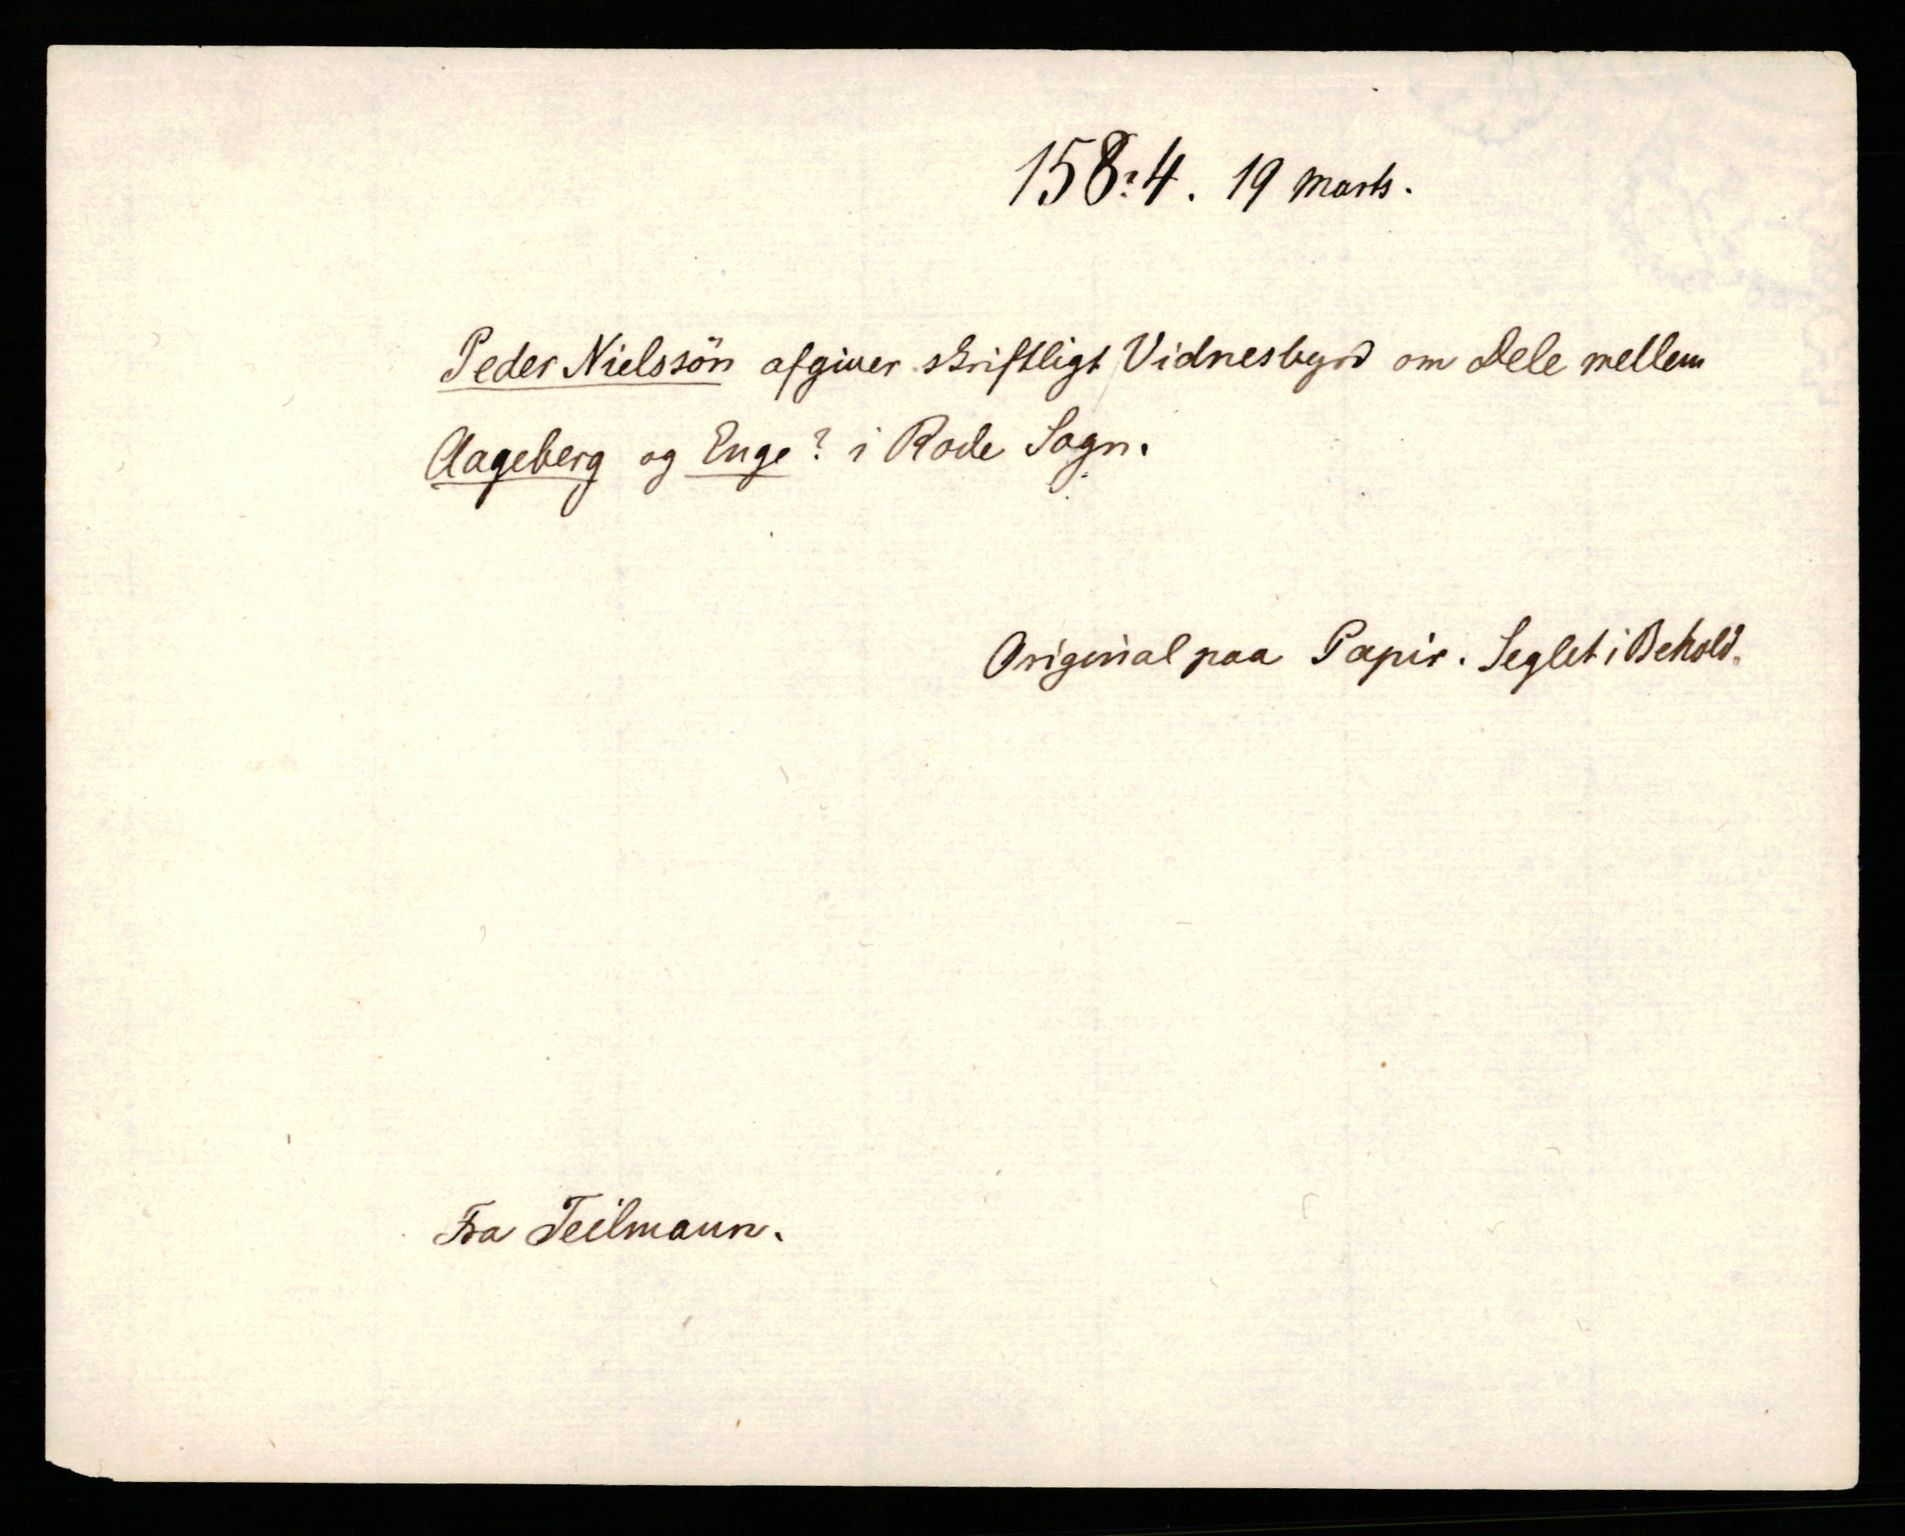 158?4. 19 Marts.
Peder Nielssön afgiver skriftligt Vidnesbyrd om Dele mellem
Aageberg og Enge? i Rode Sogn.
Original paa Papir. Seglet i Behold.
Fra Teilmann.